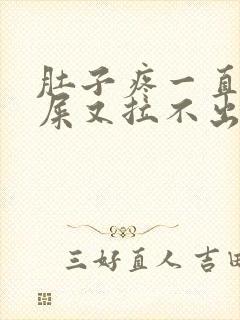 肚子疼一直
屎又拉不出
三好直人 吉田